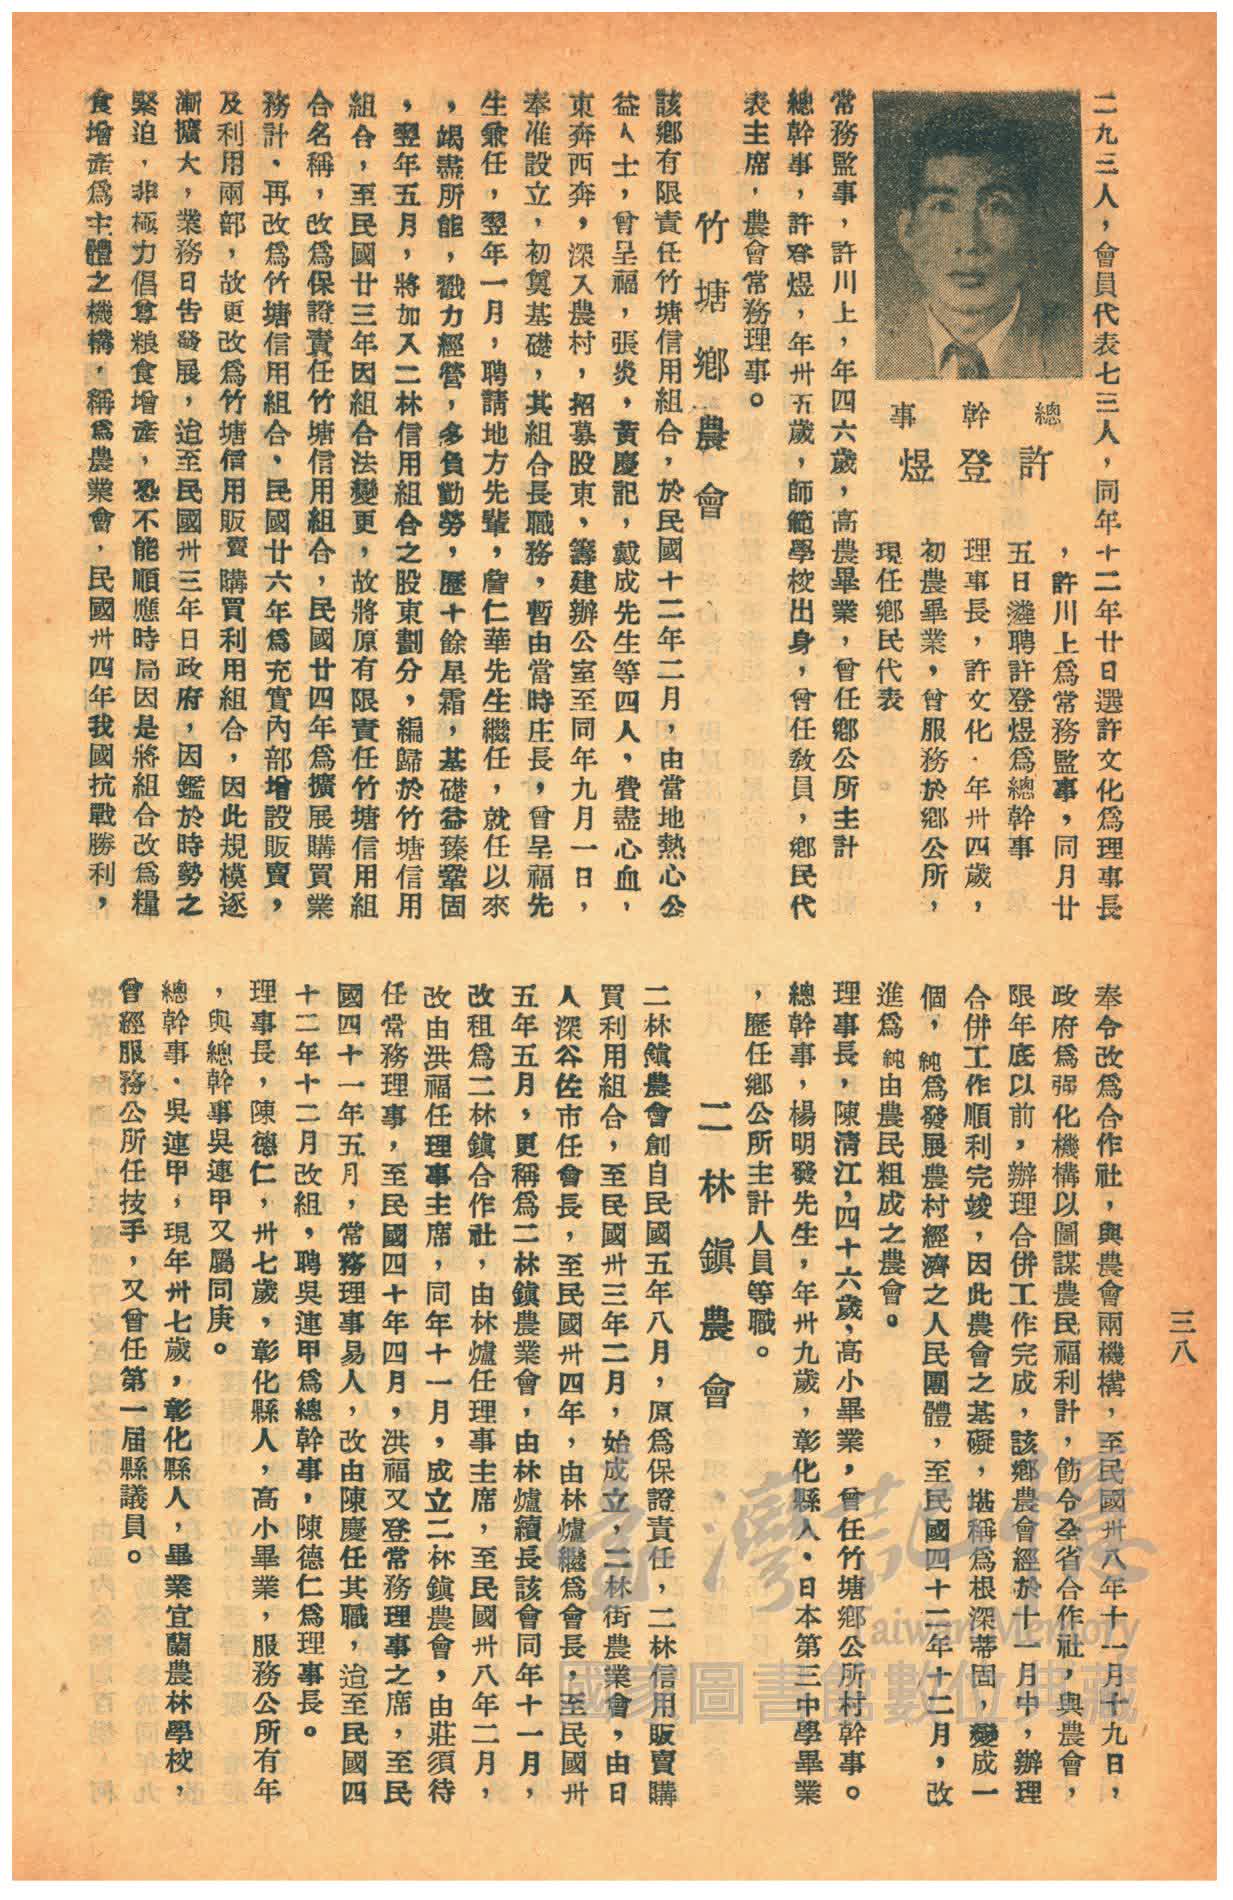 二九三人，會員代表七三人，同年十二年廿日選許文化爲理事長
，許川上爲常務監事，同月廿
五日遴聘許登煜爲總幹事
理事長，許文化．年卅四歲，
初農畢業，曾服務於鄉公所，
現任鄉民代表
總幹事
許登煜
常務監事，許川上，年四六歲，高農畢業，曾任鄉公所主計
總幹事，許登煜，年卅五歲，師範學校出身，曾任敎員，鄉民代
表主席，農會常務理事。
竹塘鄉農會
該鄉有限責任竹塘信用組合，於民國十二年二月，由當地熱心公
益人士，曾呈福，張炎，黃慶記，戴成先生等四人，費盡心血，
東奔西奔，深入農村，招募股東，籌建辦公室至同年九月一日，
奉准設立，初奠基礎，其組合長職務，暫由當時庄長，曾呈福先
生兼任，翌年一月，聘請地方先輩，詹仁華先生繼任，就任以來
，竭盡所能，戮力經營，多負勸勞，歷十餘星霜，基礎益臻鞏固
，翌年五月，將加入二林信用組合之股東劃分，編歸於竹塘信用
組合，至民國廿三年因組合法變更，故將原有限責任竹塘信用組
合名稱，改爲保證責任竹塘信用組合，民國廿四年爲擴展購買業
務計、再改爲竹塘信用組合、民國廿六年爲充實內部增設販賣，
及利用兩部，故更改爲竹塘信用販賣購買利用組合，因此規模逐
漸擴大，業務日告發展，迨至民國卅三年日政府，因鑑於時勢之
緊迫，非極力倡尊粮食增產，恐不能順應時局因是將組合改爲糧
食增產爲主體之機構，稱爲農業會，民國卅四年我國抗戰勝利，
奉令改爲合作社，與農會兩機構，至民國卅八年十一月十九日，
政府爲强化機構以圖謀農民福利計，飭令全省合作社，與農會，
限年底以前，辦理合併工作完成，該鄉農會經於十一月中，辦理
合併工作順利完竣，因此農會之基礎，堪稱爲根深蒂固，變成一
個，純爲發展農村經濟之人民團體，至民國四十二年十二月，改
進爲純由農民粗成之農會。
理事長，陳淸江，四十六歲，高小畢業，曾任竹塘鄉公所村幹事。
總幹事，楊明發先生，年卅九歲，彰化縣人、日本第三中學畢業
，歷任鄉公所主計人員等職。
二林鎭農會
二林鎭農會創自民國五年八月，原爲保證責任，二林信用販賣購
買利用組合，至民國卅三年二月，始成立，二林街農業會，由日
人深谷佐市任會長，至民國卅四年，由林爐繼爲會長，至民國卅
五年五月，更稱爲二林鎭農業會，由林爐續長該會同年十一月，
改租爲二林鎭合作社，由林爐任理事主席，至民國卅八年二月，
改由洪福任理事主席，同年十一月，成立二林鎭農會，由莊須待
任常務理事，至民國四十年四月，洪福又登常務理事之席，至民
國四十一年五月，常務理事易人，改由陳慶任其職，迨至民國四
十二年十二月改組，聘吳連甲爲總幹事，陳德仁爲理事長。
理事長，陳德仁，卅七歲，彰化縣人，高小畢業，服務公所有年
，與總幹事吳連甲又屬同庚。
總幹事、吳連甲，現年卅七歲，彰化縣人，畢業宜蘭農林學校，
曾經服務公所任技手，又曾任第一屆縣議員。
三八
臺灣記憶
Taiwan Memory
國家圖書館數位典藏